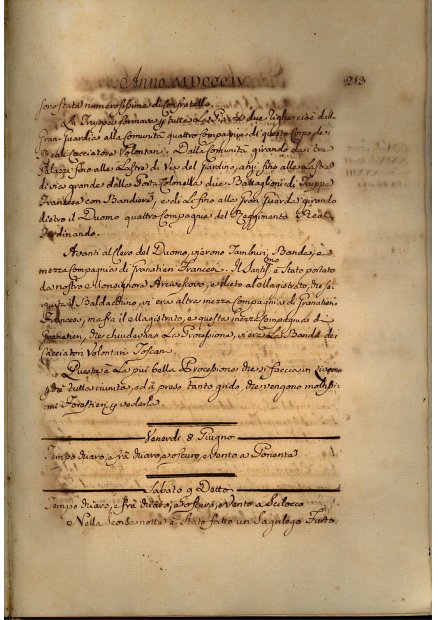 Anno MDCCCIV. 213
sono state numerosissime di Confratelli.
La Truppa formava p tutto La Parata due Linee cioè dalla
Gran Guardia alla Comunità quattro Compagnie di questo Corpo de
Reali Cacciatori Volontari. Dalla Comunità girando da i tre
Palazzi fino alle Lastre di Via del Giardino, anzi fino alle Lastre
di via grande dalla Porta Colonella due Battaglioni di Truppa
Francese con Bandiera, e di Lì fino alla Gran Guardia girando
dietro il Duomo quattro Compagnie del Reggimento Real
Ferdinando.
Avanti al Clero del Duomo, vi erono Tamburi, Banda, e
mezza Compagnia di Granatieri Francesi. Il Santis.mo è Stato portato
da nostro Monsignore Arcivescovo, e dietro al Magistrato, che se
guiva il Baldacchino, vi era altra mezza Compagnia di Granatieri
Francesi, ma fra il Magistrato, e questa mezza Compagnia di
Granatieri, che chiudevano La Processione, vi era La Banda dei
Cacciatori Volontari Toscani.
Questa è La più bella Processione che si faccia in Livorno
p che tutta riunita, ed à preso tanto grido che vengono moltissi
mi Forestieri p vederla.
Venerdì 8 Giugno
Tempo chiaro, e frà chiaro, e oscuro, e vento a Ponente
Sabato 9 Detto
Tempo chiaro, e frà chiaro, e oscuro, e Vento a Scilocco
e Nella scorsa notte è Stato fatto un Sagrilego Furto